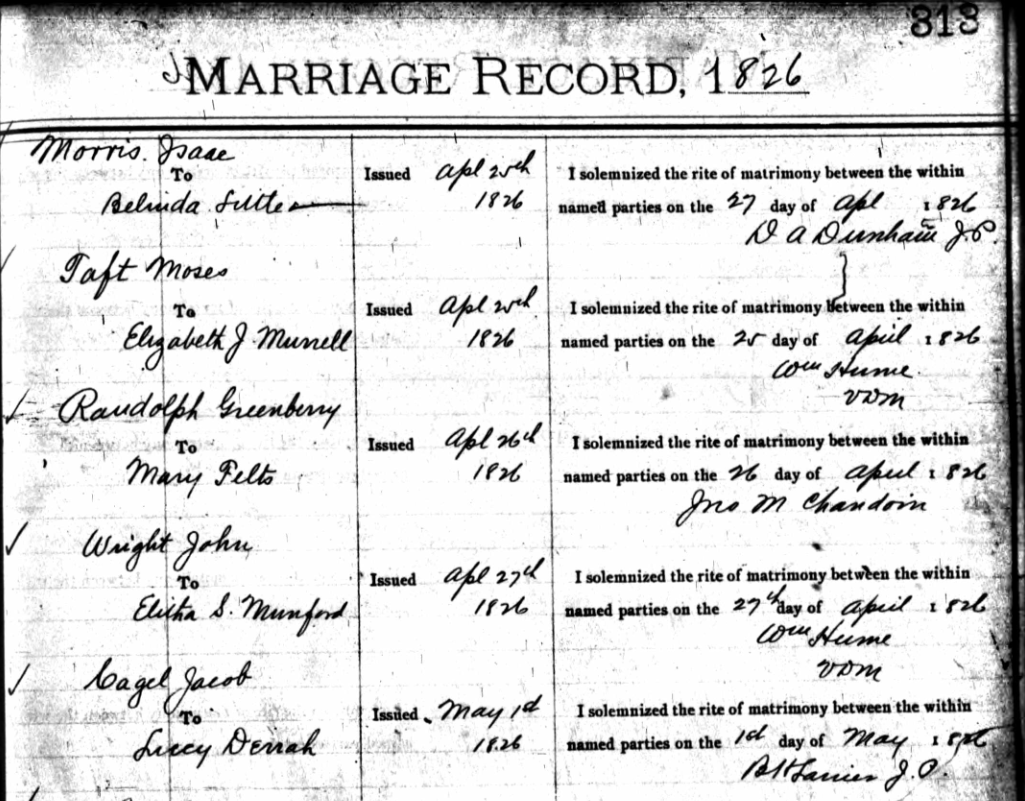 313
MARRIAGE RECORD, 1826
Morris Isaac
To
Belinda
Issued Apl 25th
1826
I solemnized the rite of matrimony between the within
named parties on the 27 day of Apl 1826
D A Dunham J.P.
Taft Moses
To
Elizabeth J. Murrell
Issued Apl 25th
1826
I solemnized the rite of matrimony between the within
named parties on the 25 day of April 1826
Wm Hume
VDM
Randolph Greenberry
To
Mary Felts
Issued Apl 26th
1826
I solemnized the rite of matrimony between the within
named parties on the 26 day of April 1826
Jno M Chandoin
Wright John
To
Elitha S. Munford
Issued Apl 27th
1826
I solemnized the rite of matrimony between the within
named parties on the 27th day of April 1826
Wm Hume
VDM
Cagel Jacob
To
Lucy Derrah
Issued May 1st
1826
I solemnized the rite of matrimony between the within
named parties on the 1st day of May 1826
J.P.